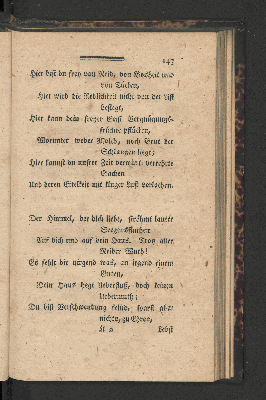 243
Hier bist du frey von Neid, von Bosheit und
von Tücken,
Hier wird die Redlichkeit nicht von der List
besiegt,
Hier kann dein freyer Gast Vergnügungs-
früchte pflücken,
Worunter weder Molch, noch Brut der
Schlangen liegt;
Hier kannst du unsrer Zeit verwirrt verkehrte
Sachen
Und deren Eitelkeit mit kluger Lust verlachen.
Der Himmel, der dich liebt, ströhmt lauter
Seegensfluthen
Auf dich und auf dein Haus. Troz aller
Neider Wuth!
Es fehlt dir nirgend was, an irgend einem
Guten,
Dein Haus hegt Ueberfluß, doch keinen
Uebermuth;
Du bist Verschwendung feind, sparst aber
nichts, zu Ehren,
Q 2
Lebst